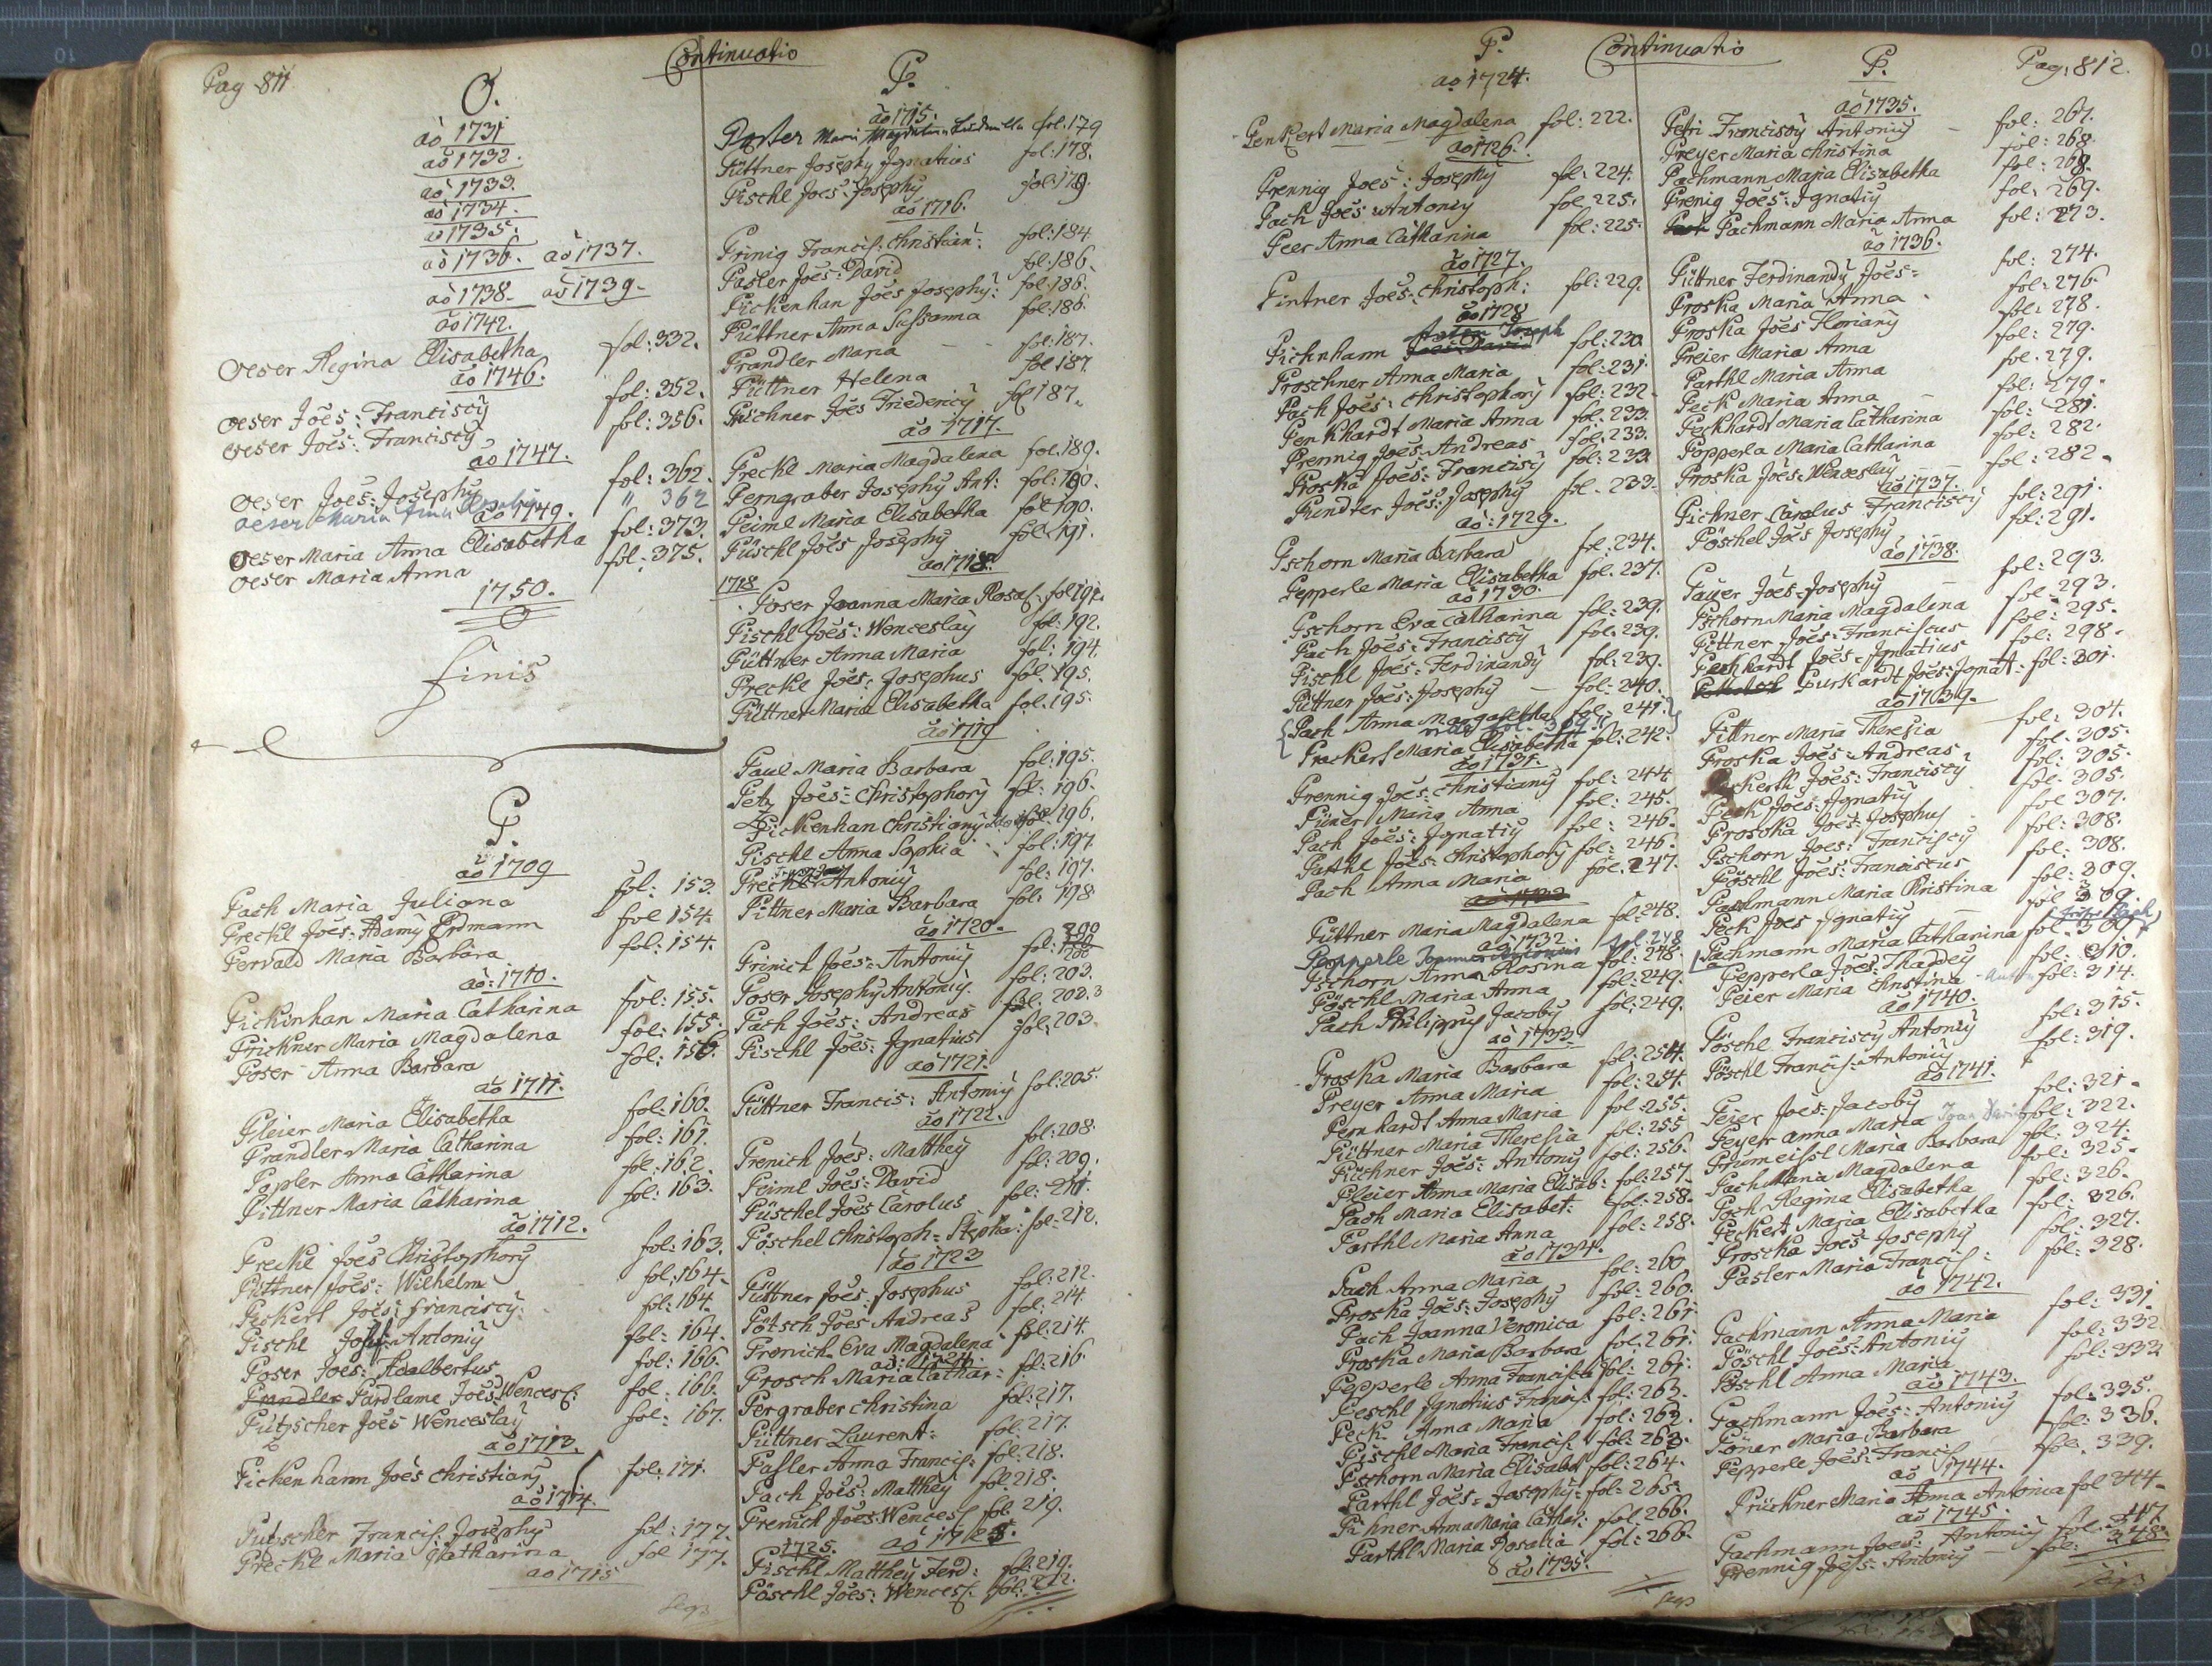 Pag 811
Continuatio
O.
aõ 1731
aõ 1732.
aõ 1733.
aõ 1734.
aõ 1735.
aõ 1736. aõ 1737.
aõ 1738. aõ 1739.
aõ 1742.
Oeser Regina Elisabetha fol: 332.
aõ 1746.
Oeser Joẽs: Franciscy fol: 352.
Oeser Joẽs: Franciscy fol: 356.
aõ 1747.
Oeser Joẽs: Josephy fol: 362.
Oeser Maria Anna " 362
aõ 1749.
Oeser Maria Anna Elisabetha fol: 373.
Oeser Maria Anna fol: 375.
1750.
finis
P.
aõ 1709
Pach Maria Juliana fol: 153.
Preckl Joẽs: Adamy Erdmann fol 154.
Pervald Maria Barbara fol: 154.
aõ: 1710.
Pickinhan Maria Catharina fol: 155.
Prickner Maria Magdalena fol: 155.
Poser Anna Barbara fol: 156.
aõ 1711.
Pleier Maria Elisabetha fol: 160.
Prandler Maria Catharina fol: 161.
Papler Anna Catharina fol: 162.
Pittner Maria Catharina fol: 163.
aõ 1712.
Preckl Joẽs Christophory fol: 163.
Püttner Joẽs: Wilhelm fol: 164.
Pickert Joẽs: Franciscy fol: 164.
Pischl Antoniy fol: 164.
Poser Joẽs: Adalbertus fol: 166.
Prandler Pardlame Joẽs Wencesl: fol: 166.
Putzscher Joẽs Wenceslay fol: 167.
aõ 1713.
Pickenhann Joẽs Christiany fol: 171.
aõ 1714.
Putzscher Francisc. Josephy fol: 177.
Preckl Maria Catharina fol 177.
aõ 1715
Seq3
P.
aõ 1715.
Poster Maria Magdalena Ludmilla fol. 179
Püttner Josephy Ignatius fol: 178.
Pischl Joẽs: Josephy fol: 179.
aõ 1716.
Prinig Francisc. Christian: fol: 184
Pasler Joẽs: David fol: 186.
Pickenhan Joẽs Josephy: fol: 186.
Püttner Anna Susanna fol: 186.
Prandler Maria fol: 187.
Püttner Helena fol 187.
Püschner Joẽs Friedericy fol 187.
aõ 1717.
Preckl Maria Magdalena fol. 189.
Perngraber Josephy Ant: fol: 190.
Peiml Maria Elisabetha fol 190.
Püschl Joẽs Josephy fol 191.
aõ 1718.
1718
Poser Joanna Maria Rosa: fol 191.
Pischl Joẽs: Wenceslay fol: 192.
Püttner Anna Maria fol: 194.
Preckl Joẽs: Josephus fol. 195.
Püttner Maria Elisabetha fol. 195.
aõ 1719
Paul Maria Barbara fol: 195.
Petz Joẽs: Christophory fol: 196.
Pickenhan Christiany fol. 196.
Pischl Anna Sophia fol: 197.
Preckl Antoniy fol: 197.
Pittner Maria Barbara fol: 198
aõ 1720.
Prinich Joẽs: Antoniy fol: 200
Poser Josephy Antoniy. fol: 203.
Pach Joẽs: Andreas fol: 203.
Pischl Joẽs: Ignatius fol. 203.
aõ 1721.
Püttner Francis: Antoniy fol: 205.
aõ 1722.
Prenich Joẽs: Matthey fol: 208.
Peiml Joẽs: David fol: 209.
Püschel Joẽs Carolus fol: 211.
Pöschel Christoph: Stepha: fol: 212.
aõ 1723
Püttner Joẽs: Josephus fol: 212.
Pötsch Joẽs Andreas fol: 214.
Prenich Eva Magdalena fol: 214.
aõ: 1724.
Prosch Maria Cathar: fol: 216
Pergraber Christina fol: 217.
Püttner Laurent: fol: 217.
Pasler Anna Francis: fol: 218.
Pach Joẽs: Matthey fol 218.
Prenich Joẽs: Wencesl fol. 219.
1725. aõ 1725.
Pischl Matthey Ferd: fol: 219.
Pöschl Joẽs: Wencesl: fol: 222.
P.
Continuatio
P.
Pag: 812.
aõ 1724.
Penkert Maria Magdalena fol: 222.
aõ 1726.
Prennig Joẽs: Josephy fol: 224.
Pach Joẽs Antoniy fol. 225.
Peer Anna Catharina fol: 225.
aõ 1727.
Pintner Joẽs: Christoph: fol: 229.
aõ 1728
Pichnhann Anton Joseph fol: 230.
Proschner Anna Maria fol: 231.
Pach Joẽs: Christophory fol: 232.
Penkhardt Maria Anna fol: 233.
Prennig Joẽs: Andreas fol: 233.
Proska Joẽs: Francisy fol: 233.
Pündter Joẽs: Josephy fol. 233.
aõ: 1729.
Pschorn Maria Barbara fol. 234.
Pepperle Maria Elisabetha fol. 237.
aõ 1730.
Pschorn Eva Catharina fol: 239.
Pach Joẽs: Franciscy fol: 239.
Pischl Joẽs: Ferdinandy fol: 239.
Püttner Joẽs: Josephy fol: 240.
Pach Anna Margaretha fol: 241.
Prackert Maria Elisabetha fol: 242.
aõ 1731.
Prennig Joẽs: Christiany fol: 244.
Püner Maria Anna fol: 245.
Pach Joẽs: Ignatiy fol: 246.
Parthl Joẽs: Christophory fol: 246.
Pach Anna Maria fol. 247.
aõ 1732
Püttner Maria Magdalena fol: 248.
aõ 1732.
Pepperle fol. 248
Pschorn Anna Rosina fol: 248.
Pöschl Maria Anna fol: 249.
Pach Philippy Jacoby fol: 249.
aõ 1733
Proska Maria Barbara fol: 254.
Preyer Anna Maria fol: 254.
Pernhardt Anna Maria fol: 255.
Püttner Maria Theresia fol: 255
Püchner Joẽs: Antoniy fol: 256.
Pleier Anna Maria Elisab: fol: 257.
Pach Maria Elisabet: fol: 258.
Parthl Maria Anna fol: 258.
aõ 1734.
Pach Anna Maria fol: 260.
Proska Joẽs: Josephy fol: 260.
Pach Joanna Veronica fol: 261.
Proska Maria Barbara fol: 261.
Pepperle Anna Francisca fol: 261.
Peschl Ignatius Francis: fol: 263.
Peck Anna Maria fol: 263.
Pischl Maria Francis: fol: 263.
Pschorn Maria Elisabet fol: 264.
Parthl Joẽs: Josephy: fol: 265.
Pichner Anna Maria Cathar: fol. 266.
Parthl Maria Rosalia fol: 266.
aõ 1735.
Seq3
aõ 1735.
Petri Franciscy Antoniy fol: 267.
Preyer Maria Christina fol: 268.
Pachmann Maria Elisabetha fol: 268.
Prenig Joẽs: Ignatiy fol: 269.
Pachmann Maria Anna fol: 273.
aõ 1736.
Püttner Ferdinandy Joẽs: fol: 274.
Proska Maria Anna fol: 276.
Proska Joẽs Floriany fol: 278.
Preier Maria Anna fol: 279.
Parthl Maria Anna fol. 279.
Peck Maria Anna fol: 279.
Peckhardt Maria Catharina fol: 281.
Popperla Maria Catharina fol: 282.
Proska Joẽs: Wenceslay fol: 282.
aõ 1737.
Pichner Carolus Franciscy fol: 291.
Pöschel Joẽs Josephy fol: 291.
aõ 1738.
Pauer Joẽs: Josephy fol: 293.
Pschorn Maria Magdalena fol. 293.
Pittner Joẽs: Franciscus fol: 295.
Peckhardt Joẽs: Ignatius fol: 298.
Purkardt Joẽs: Ignat: fol: 301.
aõ 1739.
Pittner Maria Theresia fol: 304.
Proska Joẽs: Andreas fol: 305.
Joẽs: Franciscy fol: 305.
Peck Joẽs: Ignatiy fol. 305.
Proscka Joẽs: Josephus fol 307.
Pschorn Joẽs: Franciscy fol: 308.
Pöschl Joẽs: Franciscus fol: 308.
Paulmann Maria Christina fol: 309.
Peck Joẽs Ignatiy fol 309.
Pachmann Maria Catharina fol. 309.
Pepperla Joẽs: Thaddey fol: 310.
Peier Maria Christina fol: 314.
aõ 1740.
Pöschl Franciscy Antoniy fol: 315.
Pöschl Francis: Antoniy fol: 319.
aõ 1741.
Peier Joẽs: Jacoby fol: 321.
Peyer Anna Maria fol: 322.
Prumeissl Maria Barbara fol: 324.
Pach Maria Magdalena fol: 325.
Poch Regina Elisabetha fol: 326.
Peckert Maria Elisabetha fol: 326.
Proscka Joẽs Josephy fol: 327.
Pasler Maria Francis: fol: 328.
aõ 1742.
Pachmann Anna Maria fol: 331.
Pöschl Joẽs: Antoniy fol: 332
Pöschl Anna Maria fol: 333.
aõ 1743.
Pachmann Joẽs: Antoniy fol: 335.
Pöner Maria Barbara fol: 336.
Pepperle Joẽs: Francis fol. 339.
aõ 1744.
Prückner Maria Anna Antonia fol 344.
aõ 1745.
Pachmann Joẽs: Antoniy fol: 347
Prennig Joẽs: Antoniy fol: 348.
Seq3